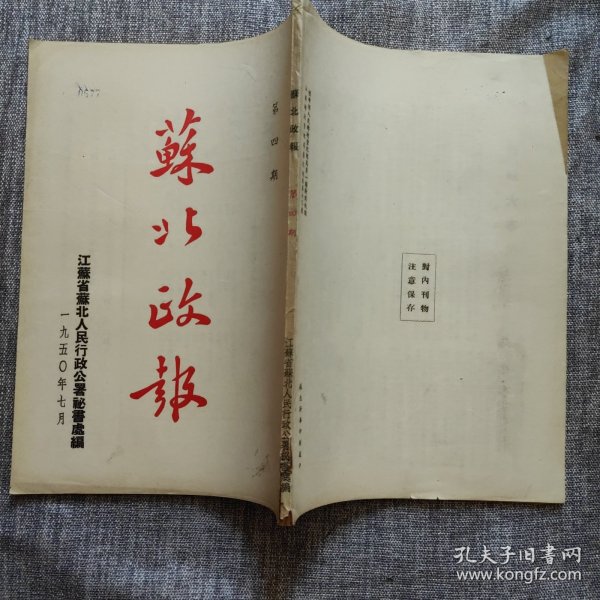 第四期
蘇北政報
江蘇省蘇北人民行政公署祕書處編
一九五〇年七月
蘇北政報 第四期 江蘇省蘇北人民行政公署祕書處編
對內刊物
注意保存
孔夫子旧书网
www.kongfz.com